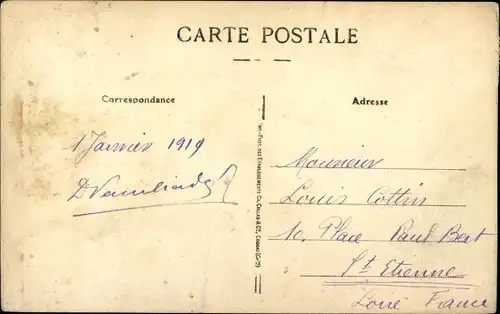 CARTE POSTALE
Correspondance
Adresse
1 Janvier 1919
Monsieur
Louis Cottin
10, Place Paul Bert
St Etienne
Loire France
Imp.-Phot. des Etablissements Ch. Collas & Cie, Cognac